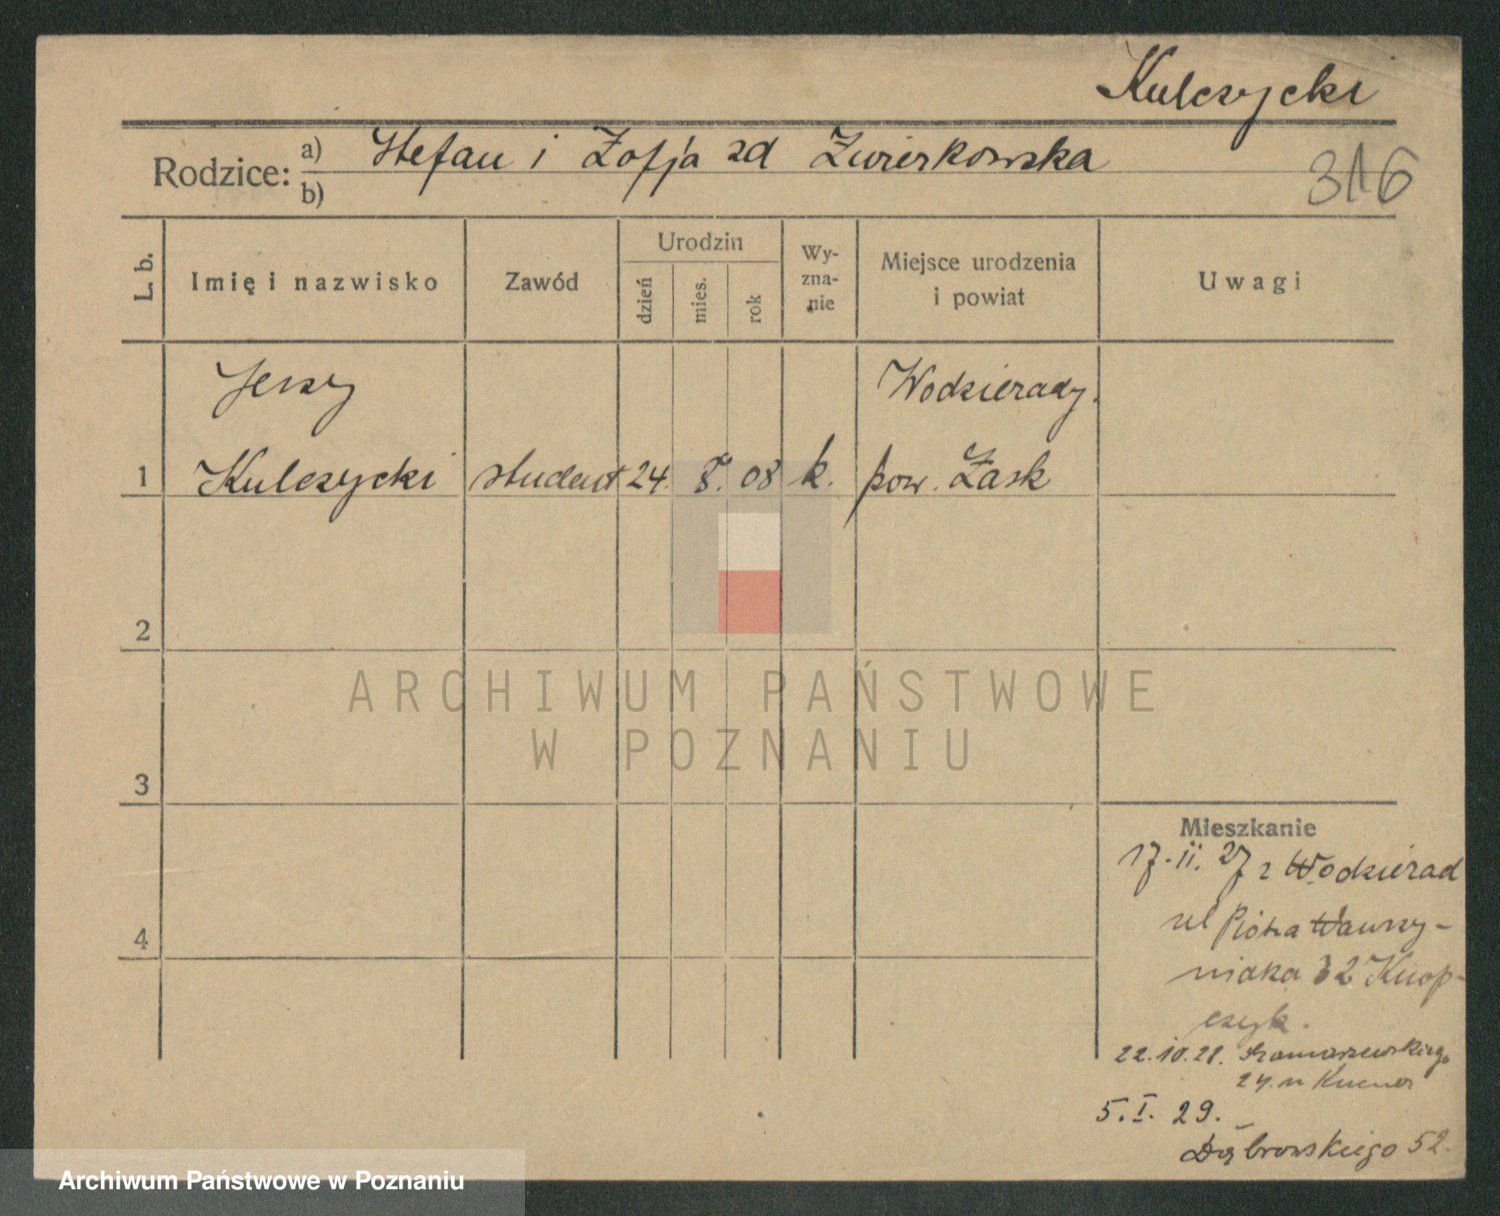 Kulczycki
Rodzice: a) Stefan i Zofja zd Żwierkowska
b)
316
L. b.
Imię i nazwisko
Zawód
Urodzin
dzień
mies.
rok
Wy-
zna-
nie
Miejsce urodzenia
i powiat
Uwagi
Jerzy
Wodzierady.
1 Kulczycki student 24. 8. 08 k. pow. Łask
2
3
4
ARCHIWUM PAŃSTWOWE
W POZNANIU
Mieszkanie
17.II.27 z Wodzierad
ul Piotra Wawrzy-
niaka 32
czyk.
22.10.28. Szamarzewskiego
24. u
5.I.29.
Dąbrowskiego 52.
Archiwum Państwowe w Poznaniu